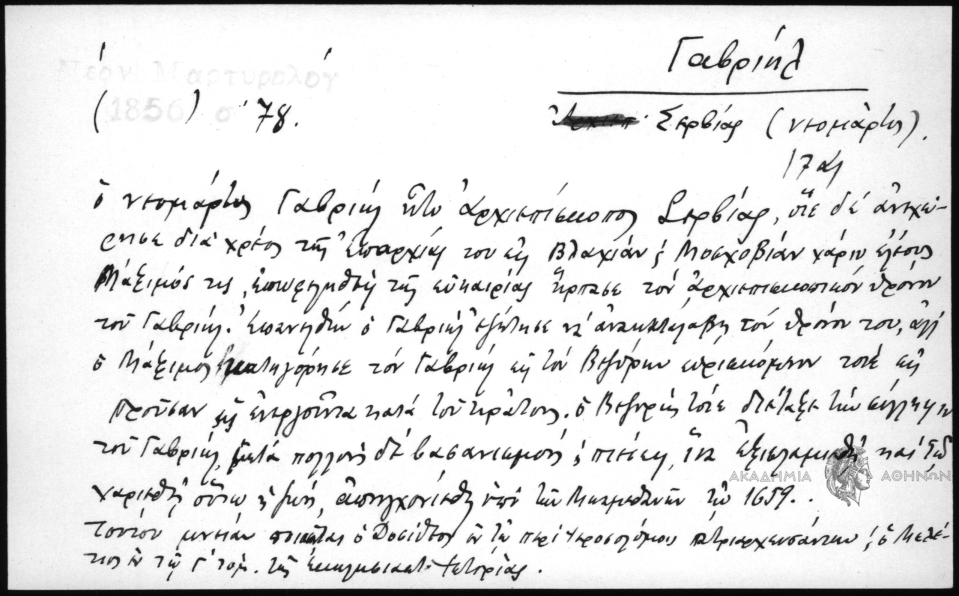 Γαβριήλ
Νέον Μαρτυρολόγ
(1856) σ 78.
Σερβίας (νεομάρτυς).
17 αι
ὁ νεομάρτυς Γαβριήλ ἦτο ἀρχιεπίσκοπος Σερβίας, ὅτε δέ ἀνεχώ-
ρησε διά χρέος τῆς ἐπαρχίας του εἰς Βλαχίαν καί Μοσχοβίαν χάριν ἐλέους
Μάξιμός τις, ἐπωφεληθείς τῆς εὐκαιρίας ἥρπασε τον ἀρχιεπισκοπικόν θρόνον
τοῦ Γαβριήλ. Ἐπανελθών ὁ Γαβριήλ ἐζήτησε ν' ἀνακαταλάβῃ τόν θρόνον του, ἀλλ'
ὁ Μάξιμος κατηγόρησε τόν Γαβριήλ εἰς τόν Βεζύρην εὑρισκόμενον τότε εἰς
Προῦσαν ὡς ἐνεργοῦντα κατά τοῦ κράτους. ὁ Βεζύρης τότε διέταξε τήν σύλληψιν
τοῦ Γαβριήλ, μετά πολλούς δέ βασανισμούς καί πιέσεις, ἵνα ἐξισλαμισθῇ καί τῷ
χαρισθῇ οὕτω ἡ ζωή, ἀπηγχονίσθη ὑπό τῶν Μωαμεθανῶν τῷ 1659.
Τούτου μνείαν ποιεῖται ὁ Δοσίθεος ἐν τῷ περί Ἱεροσολύμοις πατριαρχευσάντων καί ὁ Μελέ-
τιος ἐν τῷ Γ' τόμ. τῆς ἐκκλησιαστ. Ἱστορίας.
ΑΚΑΔΗΜΙΑ ΑΘΗΝΩΝ